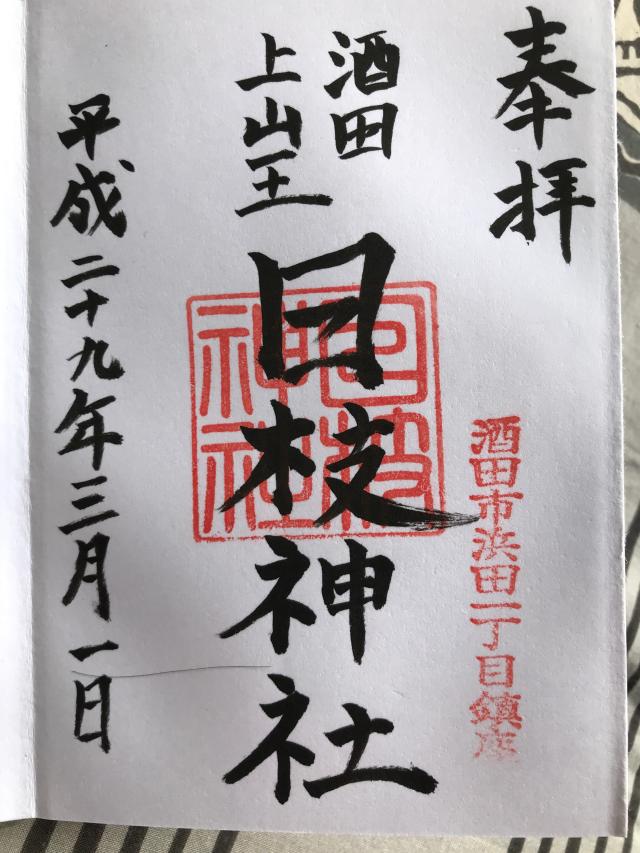 奉拝
酒田市浜田一丁目鎮座
酒田
上山王
日枝神社
日枝
神社
平成二十九年三月一日